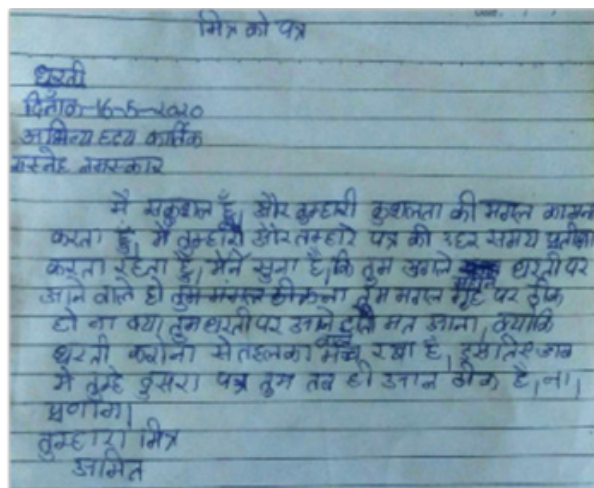 मित्र को पत्र
धरती
दिनाँक-16-5-2020
हृदय कार्तिक
सस्नेह नमस्कार
मै सकुशल हूँ, और तुम्हारी कुशलता की मंगल कामना
करता हूँ, मै तुम्हारी और तम्हारे पत्र की हर समय प्रतीक्षा
करता रहता हूँ, मैने सुना है, कि तुम अगले धरती पर
आने वाले हो तुम मंगल ठीक ना तुम मंगल गृह पर ठीक
हो ना क्या, तुम धरती पर आने मत आना, क्योकि
धरती करोना से तहलका मच रखा है, इसलिए जब
मे तुम्हे दुसरा पत्र तुम तब ही आना ठीक है, ना,
प्रणाम।
तुम्हारा मित्र
अमित